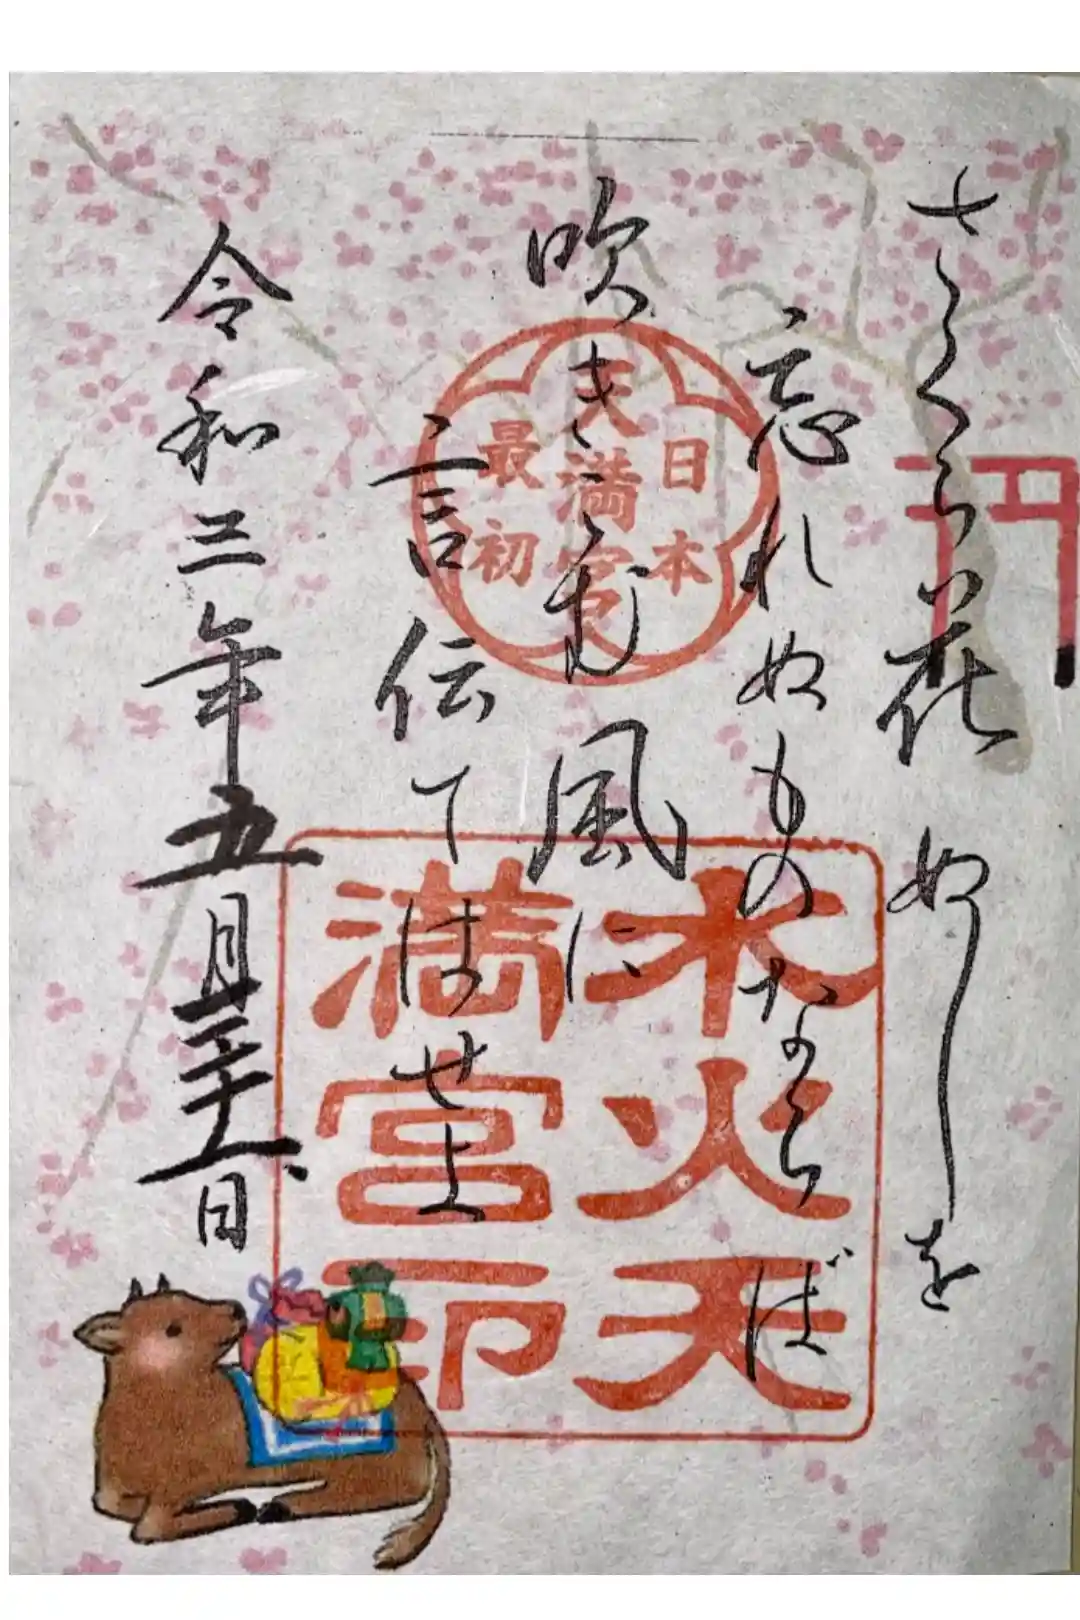 さくら花 ぬしを
忘れぬものならば
吹きこむ風に
言伝てはせよ
令和三年五月三十一日
日本
最初
天満宮
水火天
満宮印